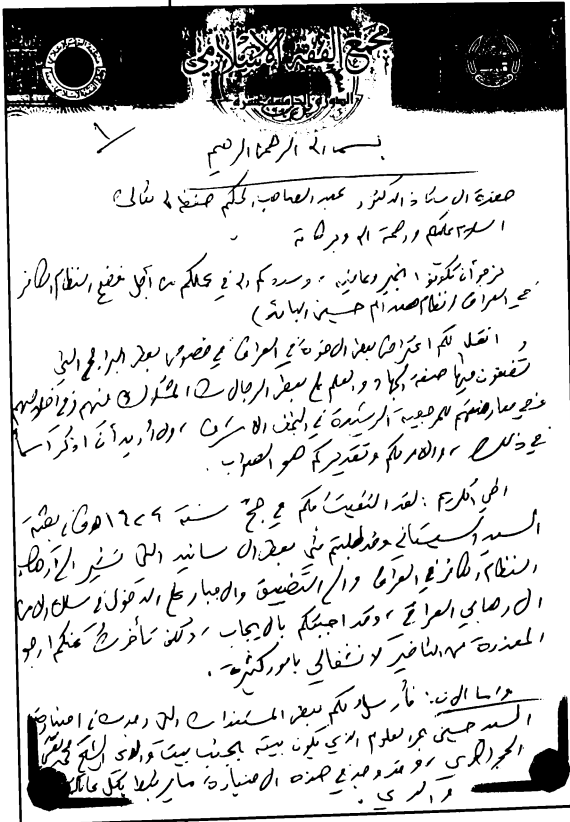 مجمع الفقه الإسلامي
بسم الله الرحمن الرحيم
حضرة الاستاذ الدكتور عبد الصاحب الحكيم حفظه الله تعالى
السلام عليكم ورحمة الله وبركاته
نرجو أن تكونوا بخير وعافية، وسددكم الله في عملكم من أجل فضح النظام الكافر
في العراق (نظام صدام حسين البائد)
و انقل لكم اعتراض بعض الاخوة في العراق في خصوص بعض البرامج التي
تضعون فيها صفة الجهاد والعلم على بعض الرجال المشكوك منهم في اخلاصهم
في معارضتهم للمرجعية الرشيدة في النجف الاشرف، ولا أريد أن اذكر اسماء
في ذلك، والامر لكم وتقديركم هو الصواب.
اخي الكريم: لقد التقيت بكم في حج سنة في بعثة
السيد السيستاني وقد طلبتم مني بعض الاسانيد التي تشير الى إرهاب
النظام الكافر في العراق والى التضييق والاجبار على الدخول في سلك الامن
الارهابي العراقي، وقد اجبتكم بالايجاب، ولكن تأخرت عنكم ارجو
المعذرة من التأخير لانشغالي بامور كثيرة.
واما الان: فأرسل لكم بعض المستندات التي وجدت في اضبارة
السيد حسين بحر العلوم الذي يكون بيته بجنب بيت والدي الشيخ محمد تقي
الجواهري، وقد وجد في هذه الاضبارة ما يرتبط بكل عائلة
والدي.